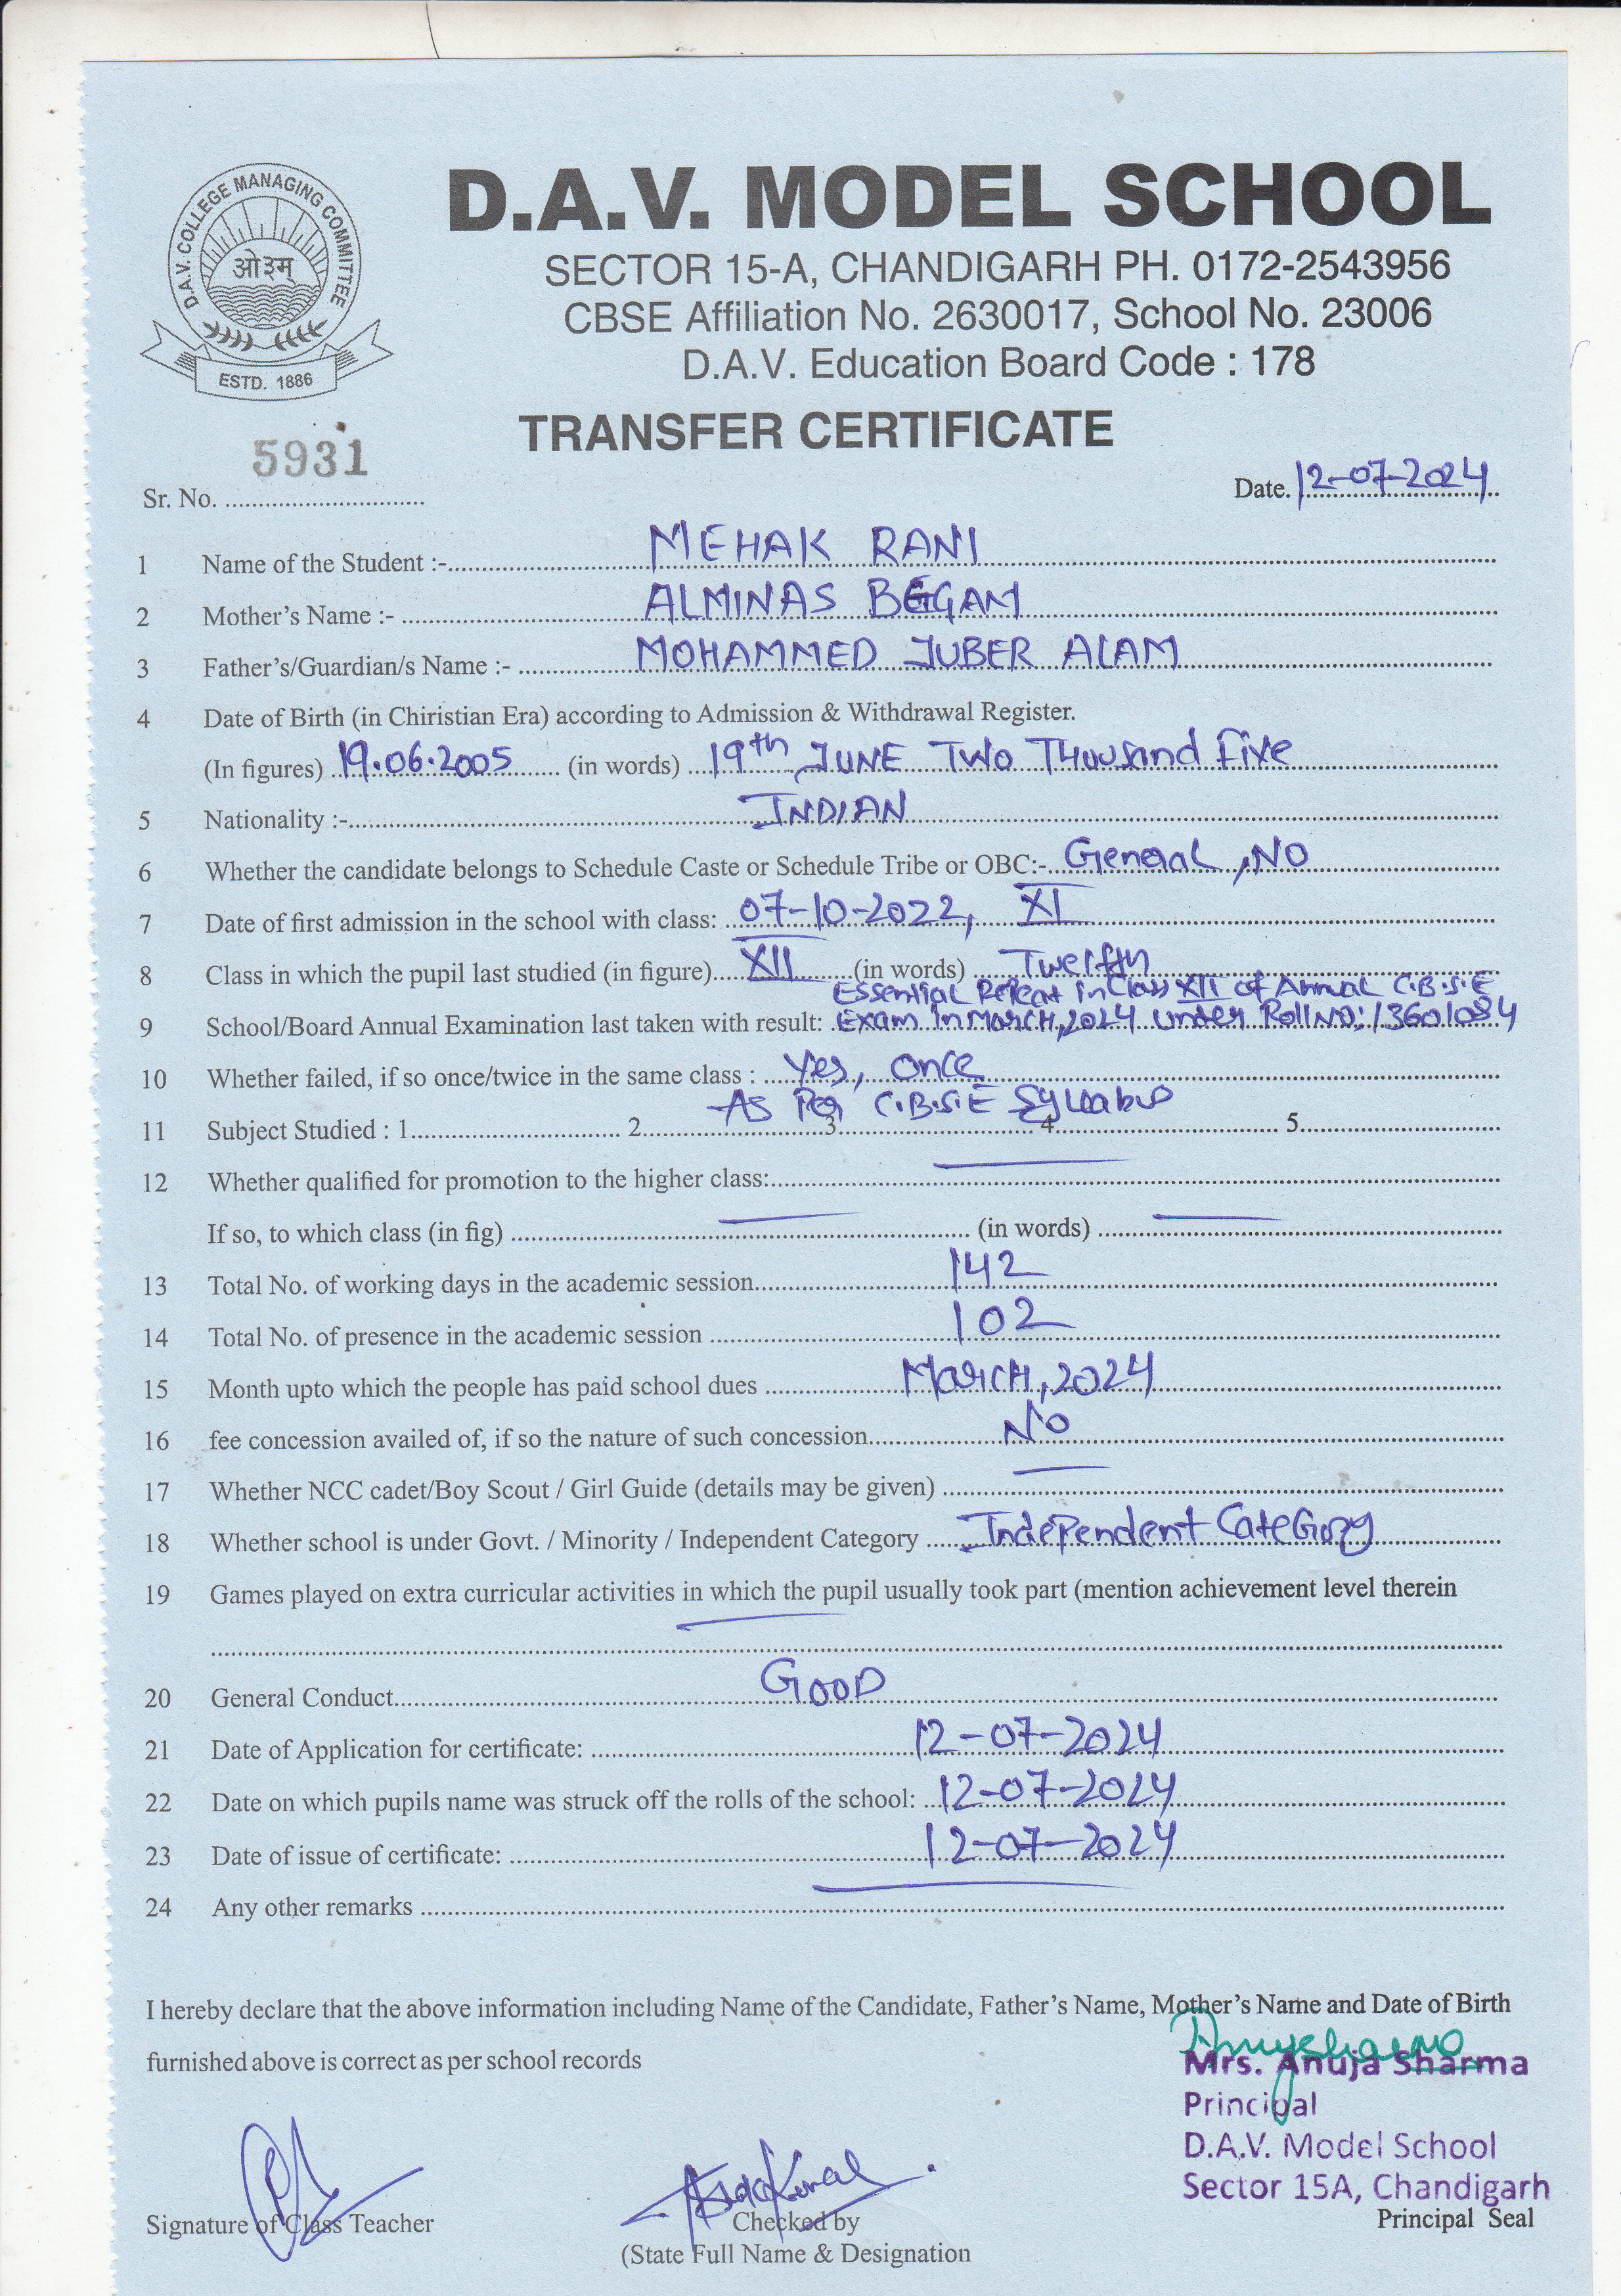 D.A.V. COLLEGE MANAGING COMMITTEE
ओ३म्
ESTD. 1886
D.A.V. MODEL SCHOOL
SECTOR 15-A, CHANDIGARH PH. 0172-2543956
CBSE Affiliation No. 2630017, School No. 23006
D.A.V. Education Board Code : 178
TRANSFER CERTIFICATE
5931
Sr. No. ............................
Date. 12-07-2024
1 Name of the Student :- MEHAK RANI
2 Mother's Name :- ALMINAS BEGAM
3 Father's/Guardian/s Name :- MOHAMMED JUBER ALAM
4 Date of Birth (in Chiristian Era) according to Admission & Withdrawal Register.
(In figures) 19.06.2005 (in words) 19th JUNE Two Thousand Five
5 Nationality :- INDIAN
6 Whether the candidate belongs to Schedule Caste or Schedule Tribe or OBC:- General, NO
7 Date of first admission in the school with class: 07-10-2022, XI
8 Class in which the pupil last studied (in figure) XII (in words) Twelfth
Essential Repeat in Class XII of Annual C.B.S.E
9 School/Board Annual Examination last taken with result: Exam in March, 2024 under Roll No: 13601084
10 Whether failed, if so once/twice in the same class : Yes, once
As Per C.B.S.E Syllabus
11 Subject Studied : 1 2 3 4 5
12 Whether qualified for promotion to the higher class:
If so, to which class (in fig) (in words)
13 Total No. of working days in the academic session 142
14 Total No. of presence in the academic session 102
15 Month upto which the people has paid school dues March, 2024
16 fee concession availed of, if so the nature of such concession No
17 Whether NCC cadet/Boy Scout / Girl Guide (details may be given)
18 Whether school is under Govt. / Minority / Independent Category Independent Category
19 Games played on extra curricular activities in which the pupil usually took part (mention achievement level therein
20 General Conduct GOOD
21 Date of Application for certificate: 12-07-2024
22 Date on which pupils name was struck off the rolls of the school: 12-07-2024
23 Date of issue of certificate: 12-07-2024
24 Any other remarks
I hereby declare that the above information including Name of the Candidate, Father's Name, Mother's Name and Date of Birth
furnished above is correct as per school records
Mrs. Anuja Sharma
Principal
D.A.V. Model School
Sector 15A, Chandigarh
Signature of Class Teacher
Checked by
Principal Seal
(State Full Name & Designation